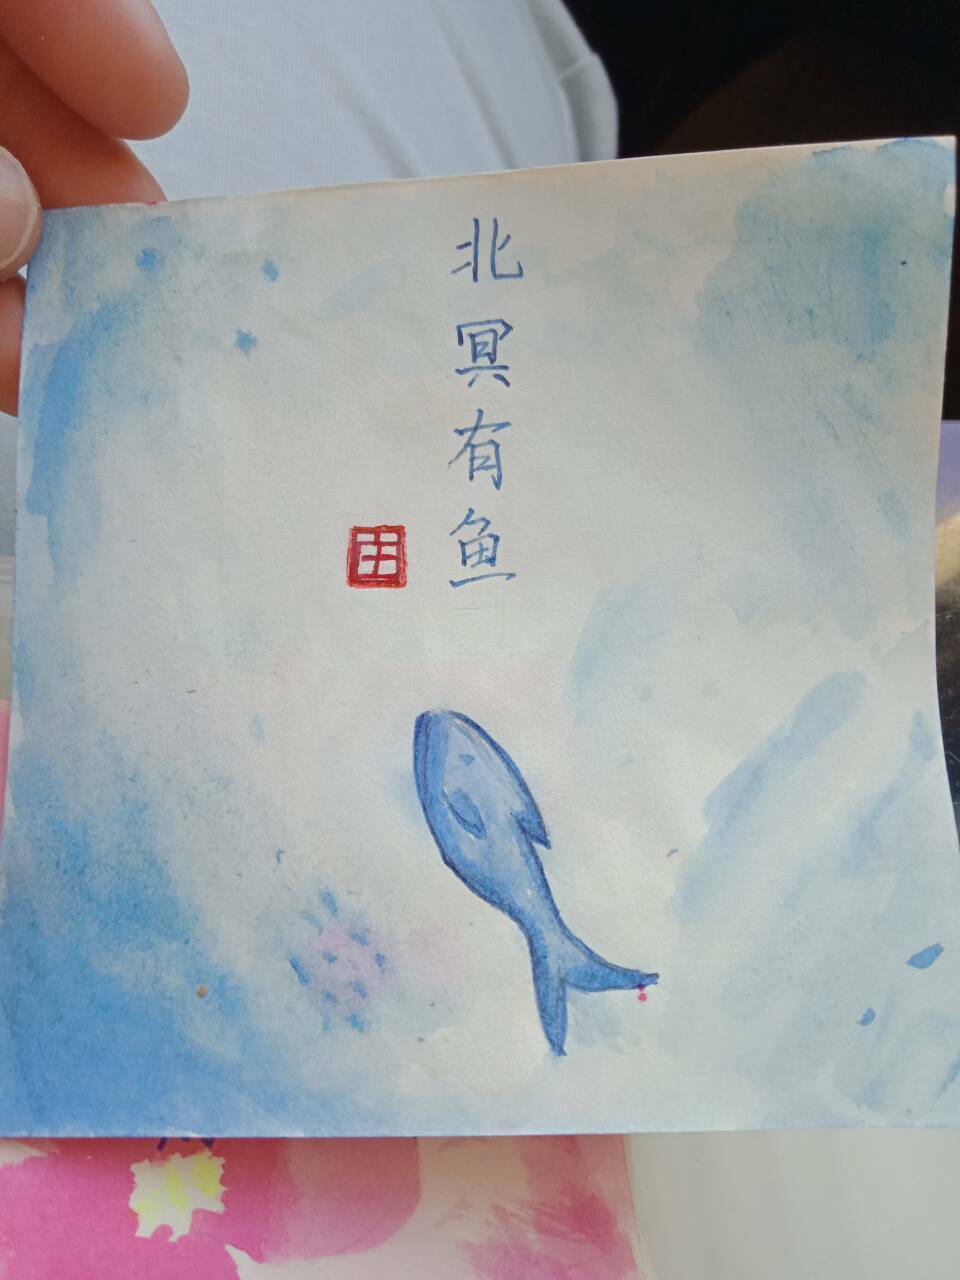 北冥有鱼